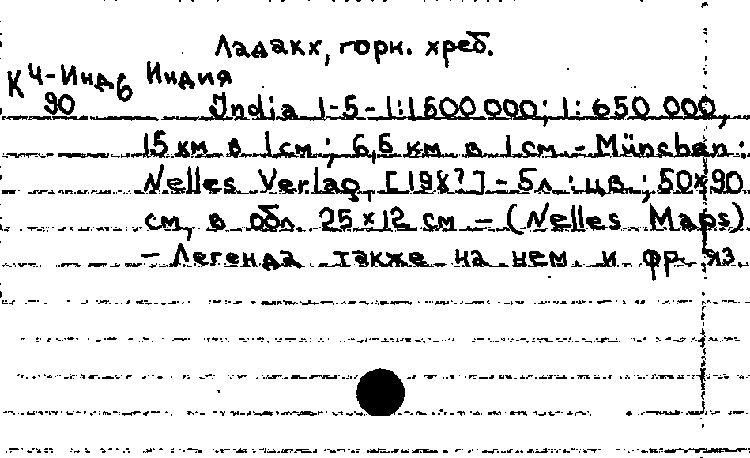 Ладакх, горн. хреб.
К 4-Инд6 Индия
90 India 1-5-1:1500 000; 1:650 000,
15 км в 1 см; 6,5 км в 1 см - München:
Nelles Verlag, [198?] - 5л : цв ; 50х90
см, в обл. 25х12 см - (Nelles Maps)
- Легенда также на нем. и фр. яз.